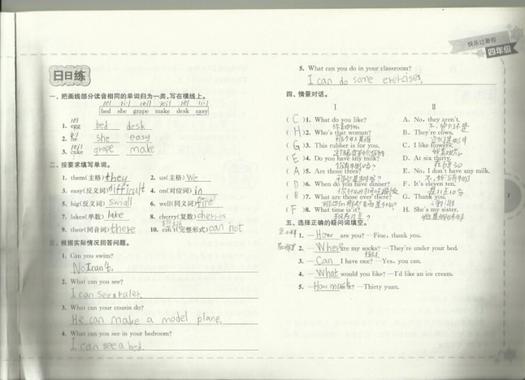 快乐过暑假
四年级
日日练
一、把画线部分读音相同的单词归为一类,写在横线上。
bed she grape make desk easy
1. egg bed desk
2. he she easy
3. cake grape make
二、按要求填写单词。
1. them(主格) they 2. us(主格) we
3. easy(反义词) difficult 4. on(对应词) in
5. big(反义词) small 6. well(同义词) fine
7. lakes(单数) lake 8. cherry(复数) cherries
9. their(同音词) there 10. can't(完整形式) can not
三、根据实际情况回答问题。
1. Can you swim?
No I can't.
2. What can you see?
I can see a ruler.
3. What can your cousin do?
He can make a model plane.
4. What can you see in your bedroom?
I can see a bed.
5. What can you do in your classroom?
I can do some exercises.
四、情景对话。
I II
( C )1. What do you like? A. No, they aren't.
( H )2. Who's that woman? B. They're cows.
( G )3. This rubber is for you. C. I like flowers.
( E )4. Do you have any milk? D. At six thirty.
( A )5. Are those trees? E. No, I don't have any milk.
( D )6. When do you have dinner? F. It's eleven ten.
( B )7. What are those over there? G. Thank you.
( F )8. What time is it? H. She's my sister.
五、选择正确的疑问词填空。
1. — How are you? —Fine, thank you.
2. — Where are my socks? —They're under your bed.
3. — Can I have one? —Yes, you can.
4. — What would you like? —I'd like an ice cream.
5. — How much —Thirty yuan.